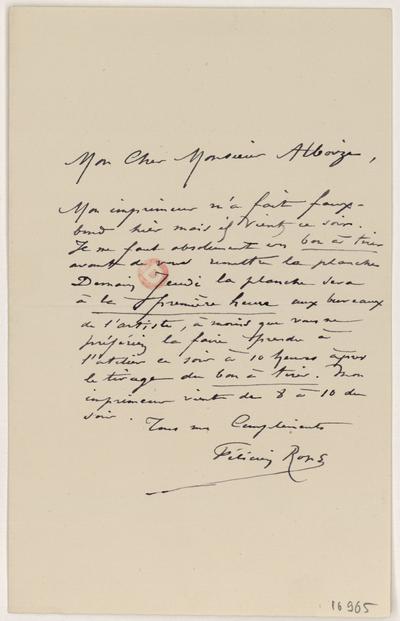 Mon Cher Monsieur Alboize,
Mon imprimeur m'a fait faux-
bond hier mais il vient ce soir.
Il me faut absolument un bon à tirer
avant de vous remettre la planche
Demain Jeudi la planche sera
à la première heure aux bureaux
de l'artiste, à moins que vous ne
préfériez la faire prendre à
l'atelier ce soir à 10 heures après
le tirage du bon à tirer. Mon
imprimeur vient de 8 à 10 du
soir.
Tous mes Compliments
Félicien Rops
16965